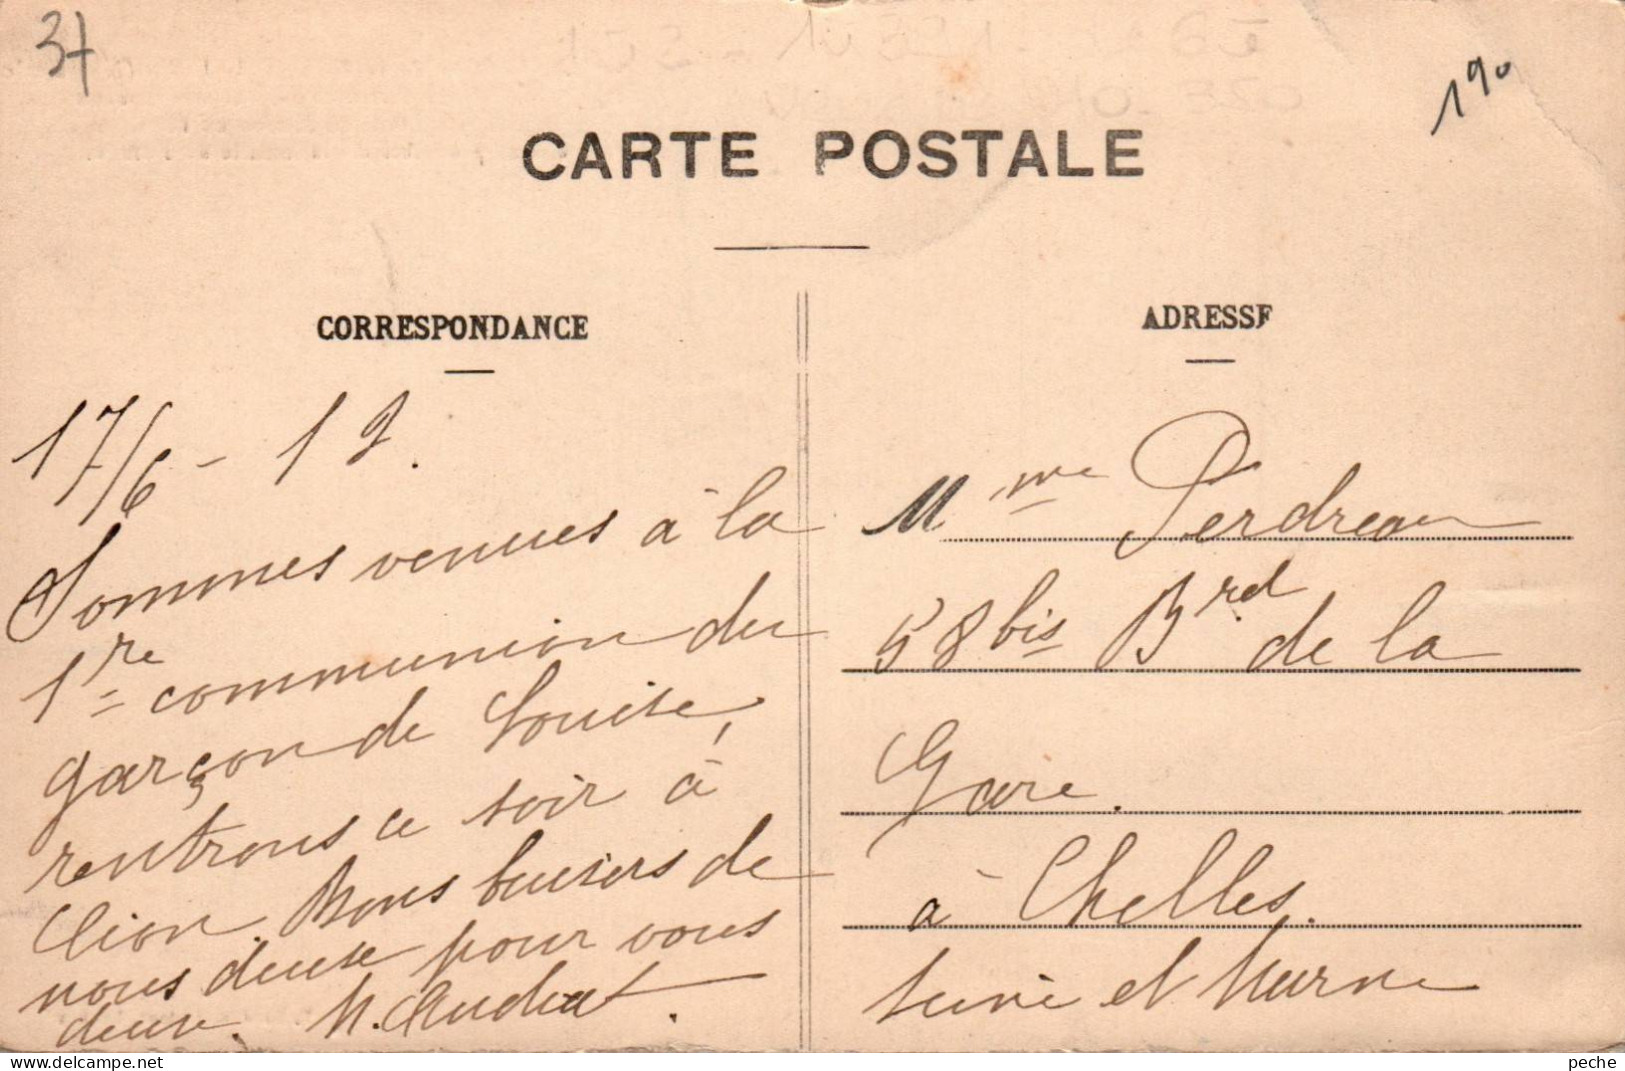 37
190
CARTE POSTALE
CORRESPONDANCE
17/6 - 12.
Sommes venues à la
1re communion du
garçon de Louise,
rentrons ce soir à
Clion. Bons baisers de
nous deux pour vous
deux. M. Audiat.
ADRESSE
Mme Perdreau
58 bis Brd de la
Gare.
à Chelles.
Seine et Marne
peche